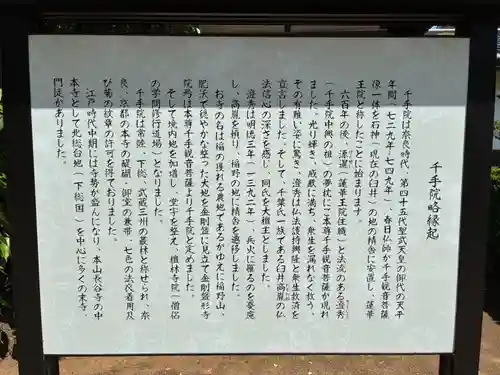 千手院略縁起
千手院は奈良時代、第四十五代聖武天皇の御代の天平
年間（七二九年-七四九年）、春日仏師が千手観音菩薩
像一体を石神（現在の臼井）の地の精舎に安置し、蓮華
王院と称したことに始まります。
六百年の後、源運（蓮華王院住職）と法流のある澄秀
（千手院中興の祖）の夢枕にご本尊千手観音菩薩が現れ
ました。光り輝き、威厳に満ち、衆生を漏れなく救う、
その有難い姿に驚き、澄秀は仏法護持興隆と衆生救済を
宣言しました。そして、千葉氏一族である臼井高胤の仏
法信心の深さを感じ、同氏を大檀主としました。
澄秀は明徳三年（一三九二年）、兵火に罹るのを憂慮
し、高胤を頼り、稲野の地に精舎を遷移しました。
お寺の名は稲の獲れる農地であるがゆえに稲野山、
肥沃で穏やかな整った大地を金剛盤に見立て金剛盤形寺
院号は本尊千手観音菩薩より千手院と定めました。
そして境内地を加増し、堂宇を整え、檀林寺院（僧侶
の学問修行道場）となりました。
千手院は常陸、下総、武蔵三州の叢林と称せられ、奈
良、京都の本寺の醍醐、御室の兼帯、七色の法衣着用及
び菊の紋章の許可を得ておりました。
江戸時代中期には寺勢が盛んになり、本山長谷寺の中
本寺として北総台地（下総国）を中心に多くの末寺、
門徒がありました。